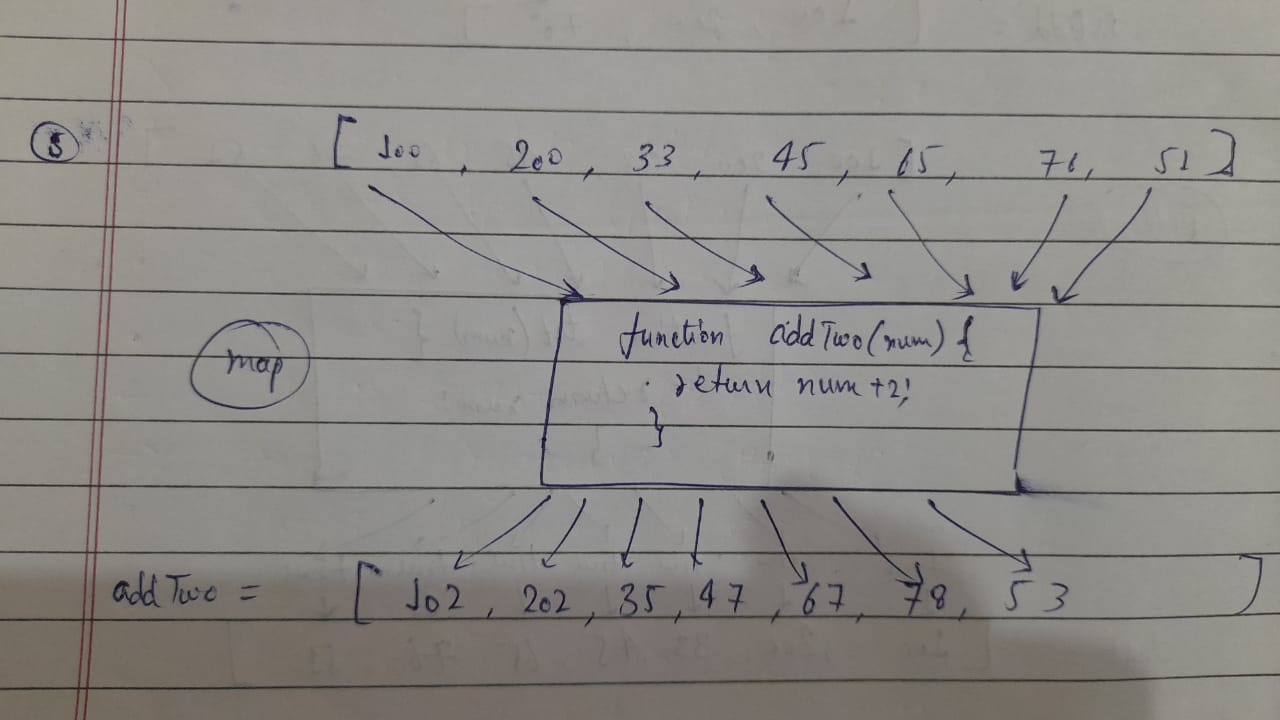 5
[ 100 , 200 , 33 , 45 , 65 , 76 , 51 ]
map
function addTwo(num) {
return num +2;
}
addTwo = [ 102 , 202 , 35 , 47 , 67 , 78 , 53 ]